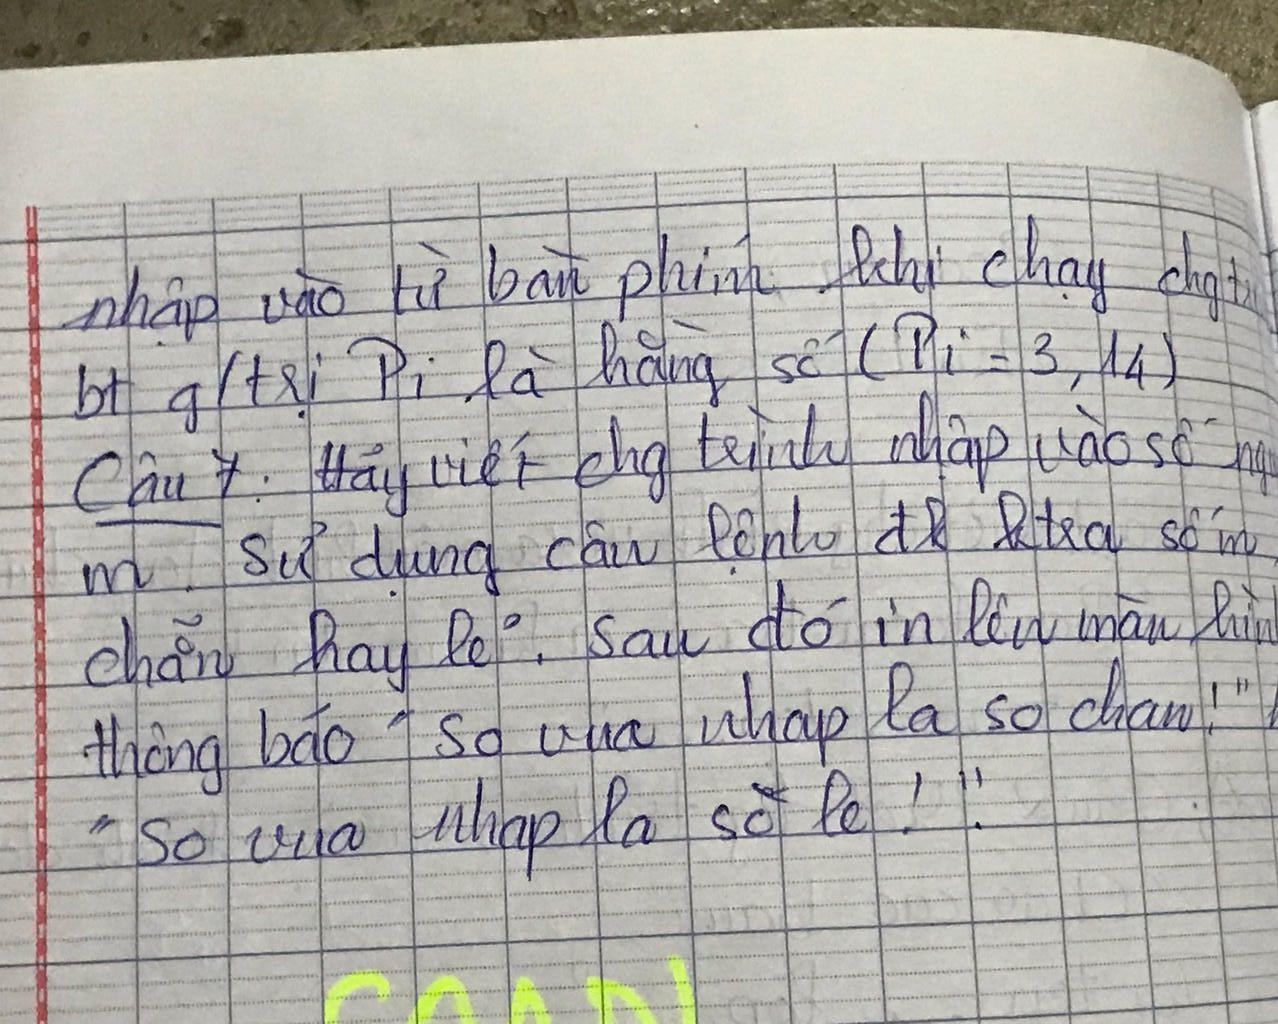 nhập vào từ bàn phím khi chạy chgtr
bt g/trị Pi là hằng số (Pi = 3,14)
Câu 7: Hãy viết chg trình nhập vào số ng
m. Sử dụng câu lệnh để ktra số m
chẵn hay lẻ. Sau đó in lên màn hìn
thông báo "So vua nhap la so chan!"
"So vua nhap la số le!".